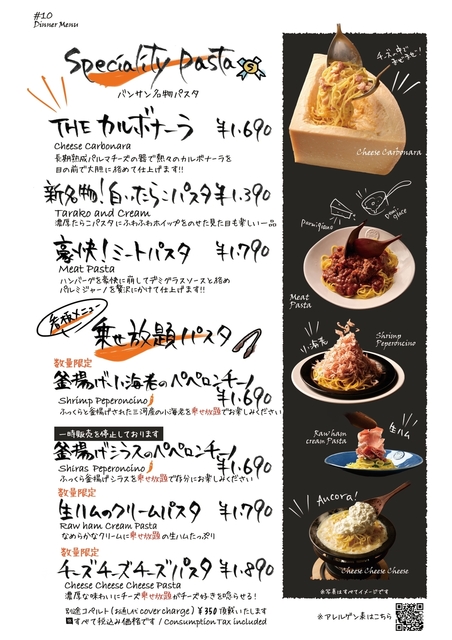 #10
Dinner Menu
Speciality Pasta
バンサン名物パスタ
THE カルボナーラ ¥1.690
Cheese Carbonara
長期熟成パルマチーズの器で熱々のカルボナーラを
目の前で大胆に絡めて仕上げます!!
新名物!白いたらこパスタ ¥1.390
Tarako and Cream
濃厚たらこパスタにふわふわホイップをのせた見た目も楽しい一品
豪快!ミートパスタ ¥1.790
Meat Pasta
ハンバーグを豪快に崩してデミグラスソースと絡め
パルミジャーノを贅沢にかけて仕上げます!!
名物メニュー
乗せ放題パスタ
数量限定
釜揚げ小海老のペペロンチーノ ¥1.690
Shrimp Peperoncino
ふっくらと釜揚げされた三河産の小海老を乗せ放題でお楽しみください
一時販売を停止しております
釜揚げシラスのペペロンチーノ ¥1.690
Shiras Peperoncino
ふっくら釜揚げシラスを乗せ放題で存分にお楽しみください
数量限定
生ハムのクリームパスタ ¥1.790
Raw ham Cream Pasta
なめらかなクリームに乗せ放題の生ハムたっぷり
数量限定
チーズチーズチーズパスタ ¥1.890
Cheese Cheese Cheese Pasta
濃厚な味わいにチーズ乗せ放題がチーズ好きを唸らせる!
別途コペルト(お通し代 cover charge) ¥350 頂戴いたします
すべて税込み価格です / Consumption TAX included
チーズの中でまぜまぜ〜!
Cheese Carbonara
parmigiano
demi glace
Meat
Pasta
Shrimp
Peperoncino
小海老
Raw ham
cream Pasta
生ハム
Ancora!
Cheese Cheese Cheese
※写真はすべてイメージです
※ アレルゲン表はこちら